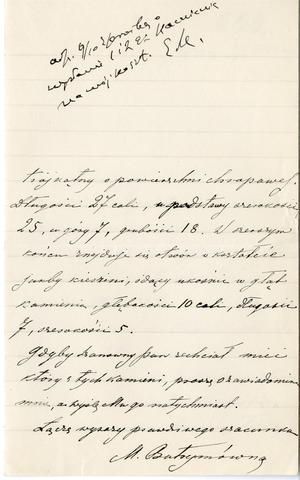 odp. 9/10 z prośbą o
wysłanie 1 i 2 ez. kamienia
na mój koszt. E.M.
trójkątny o powierzchni chropawej.
Długości 27 cali, u podstawy szerokości
25, u góry 7, grubości 18. W szerszym
końcu znajduje się otwór w kształcie
jakby kieszeni, idący ukośnie w głąb
kamienia, głębokości 10 cali, długości
7, szerokości 5.
Gdyby szanowny pan zechciał mieć
który z tych kamieni, proszę o zawiadomienie
mnie, a wyślę Mu go natychmiast.
Łączę wyrazy prawdziwego szacunku
M. Butrymówna